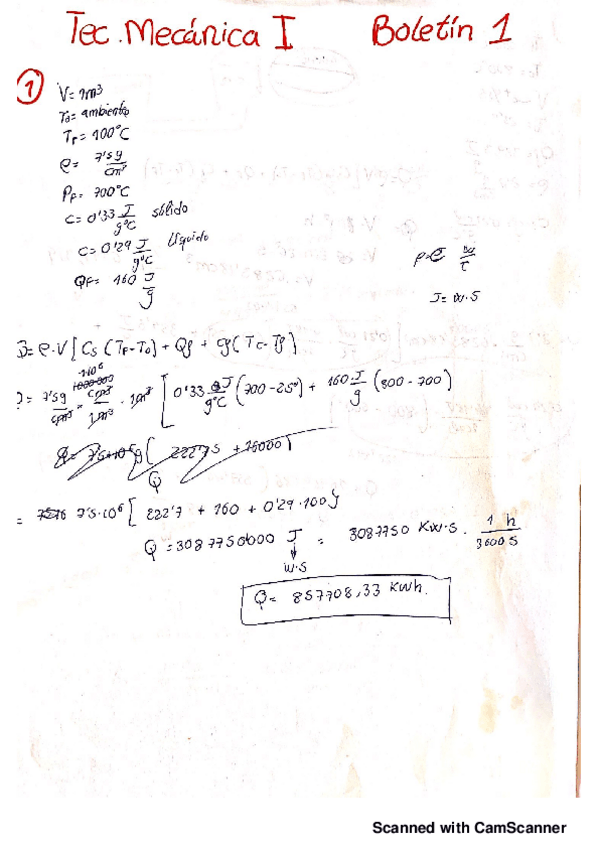 Tec. Mecánica I Boletín 1
1
V= 1m³
T₀= ambiente
T_F = 100°C
ρ= 7'5g/cm³
P_F= 700°C
C= 0'33 J/g°C sólido
C= 0'29 J/g°C líquido
Q_F= 160 J/g
J= W·S
Q= ρ·V [Cs (T_F-T₀) + Qf + Cf (Tc-Tf)
= 7'5g/cm³ · 1·10⁶ cm³/1m³ · 1m³ [0'33 J/g°C (700-25°) + 160 J/g (800-700)
Q
= 7'5·10⁶ [222'7 + 160 + 0'29·100]
Q = 3087750000 J = 3087750 KW·S · 1 h/3600S
W·S
Q= 857708,33 KWh.
Scanned with CamScanner